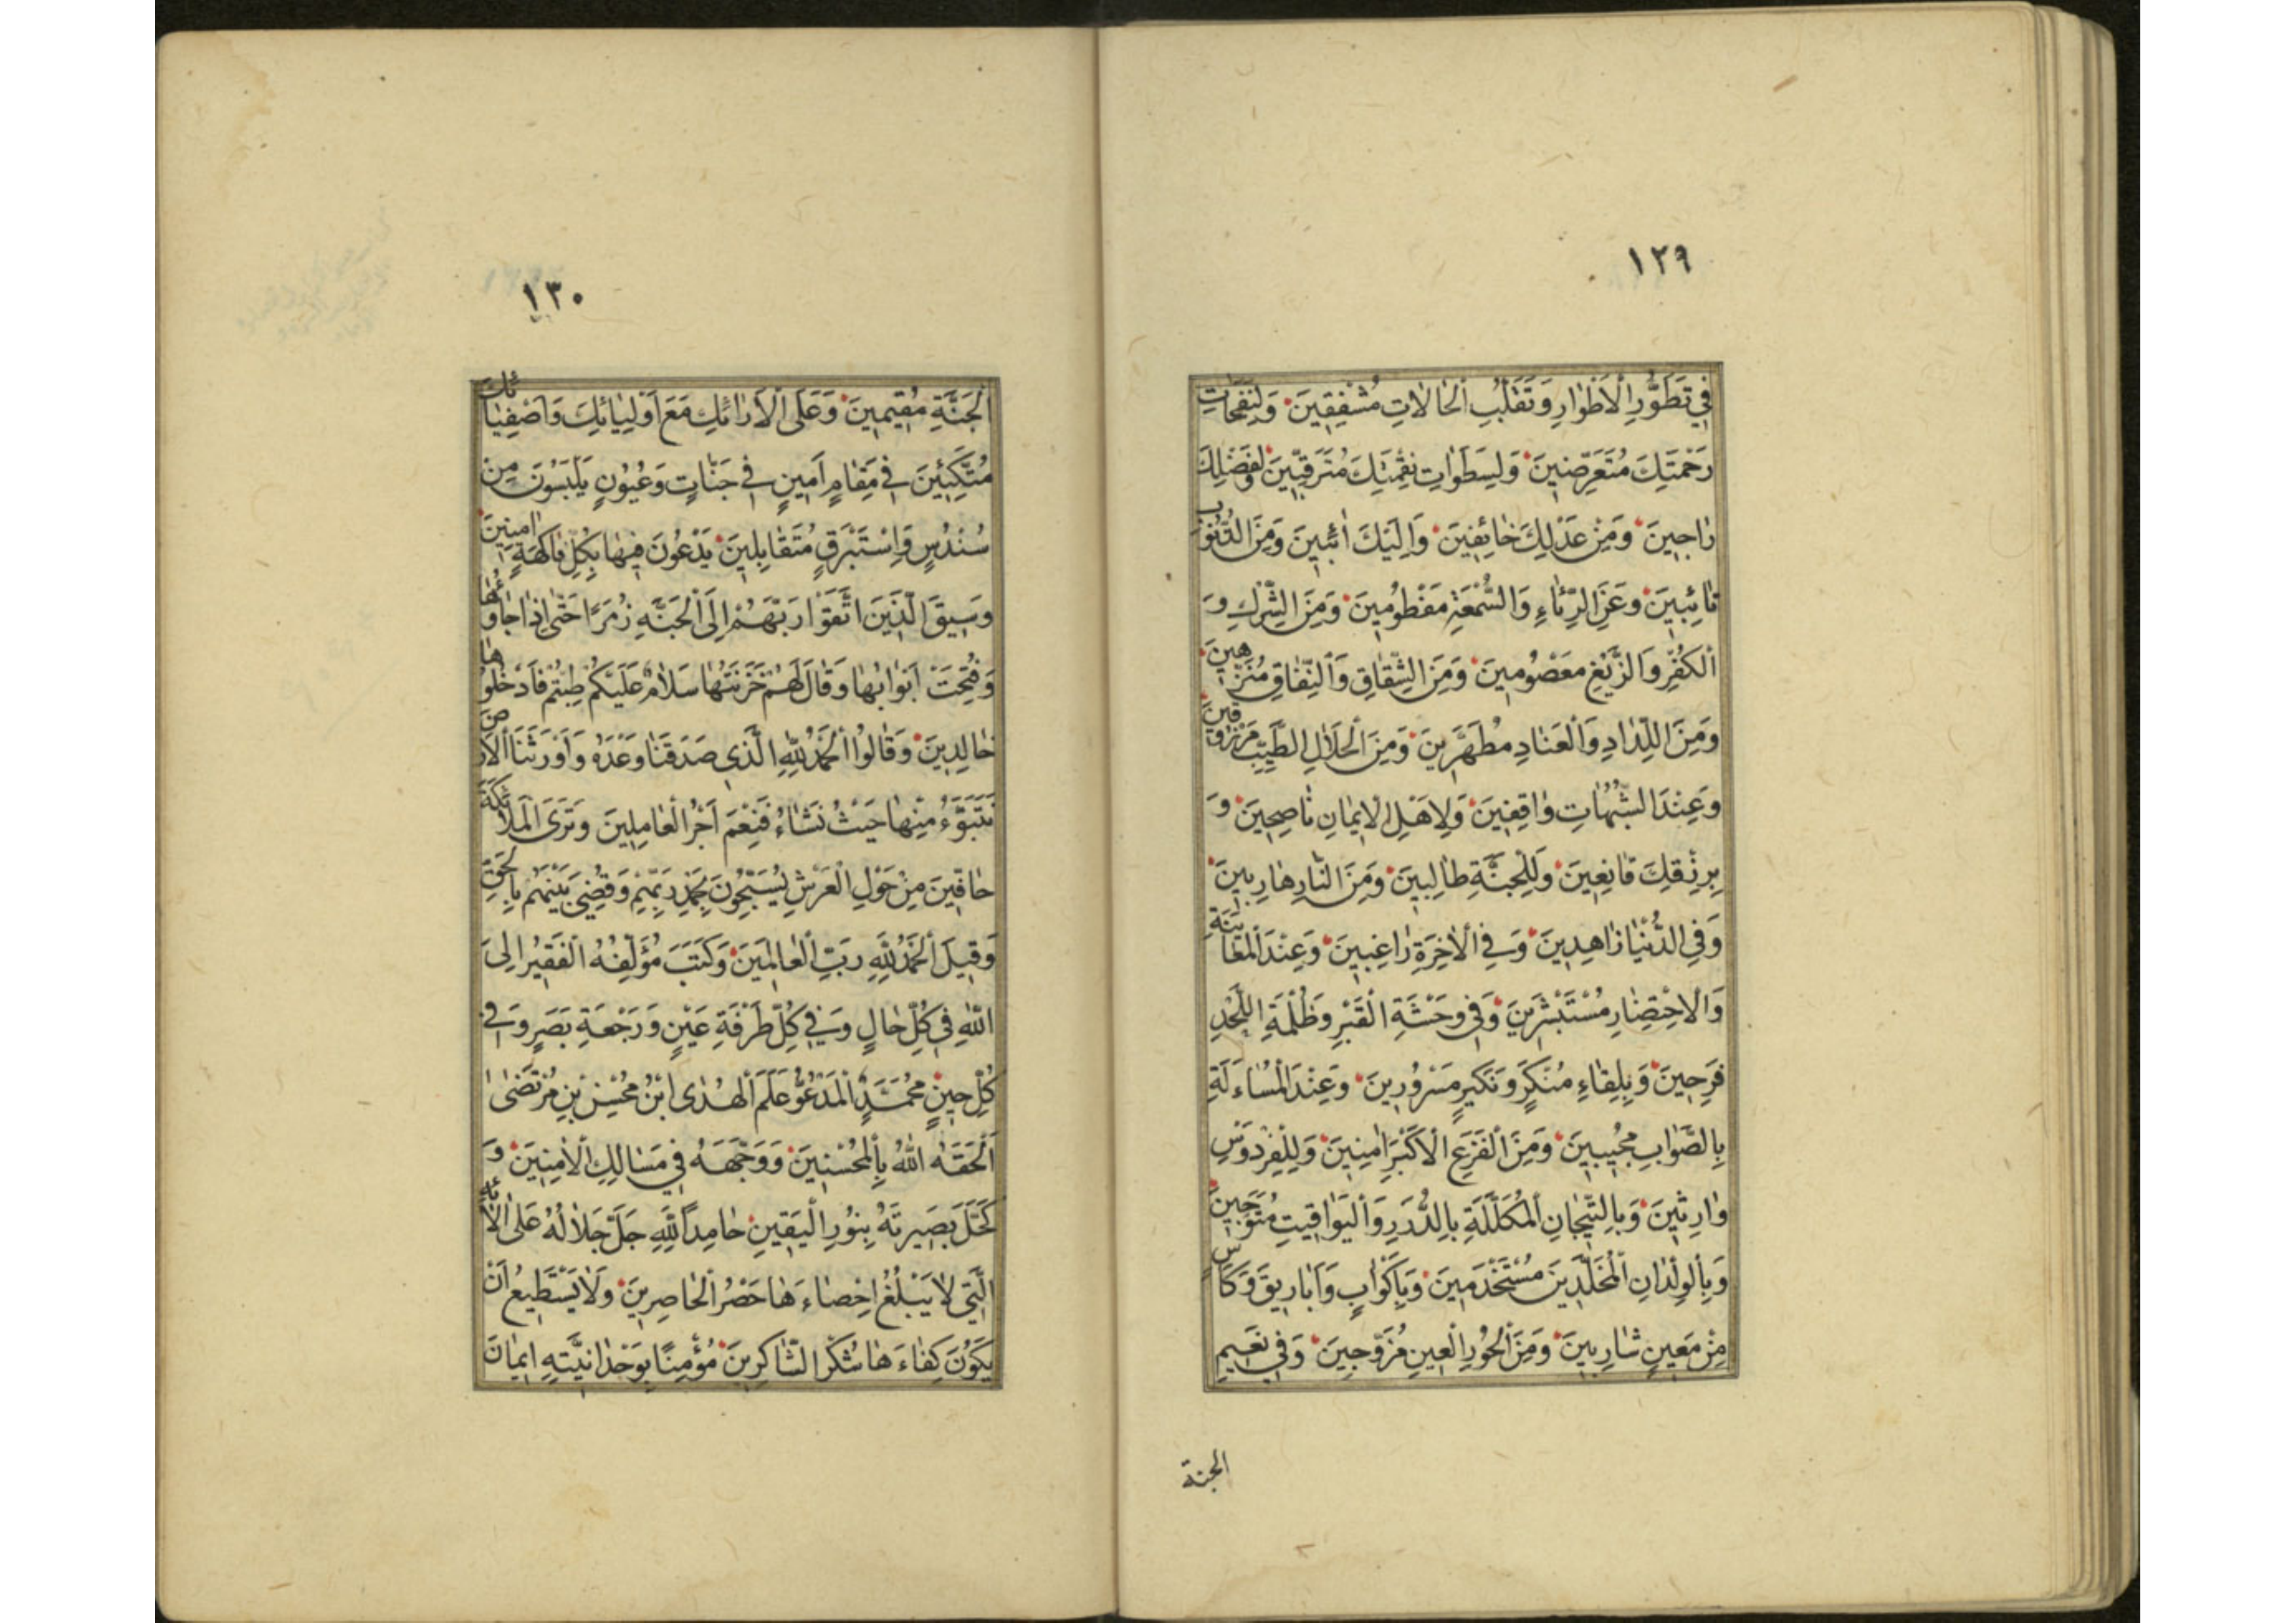 ١٢٩
فِي تَطَوُّرِ الْأَطْوَارِ وَتَقَلُّبِ الْحَالَاتِ مُشْفِقِينَ وَلِنَفَحَاتِ
رَحْمَتِكَ مُتَعَرِّضِينَ وَلِسَطَوَاتِ نِقْمَتِكَ مُتَرَقِّبِينَ وَلِفَضْلِكَ
رَاجِينَ وَمِنْ عَدْلِكَ خَائِفِينَ وَإِلَيْكَ اٰئِبِينَ وَمِنَ الذُّنُوبِ
تَائِبِينَ وَعَنِ الرِّئَاءِ وَالسُّمْعَةِ مَفْطُومِينَ وَمِنَ الشِّرْكِ وَ
الْكُفْرِ وَالزَّيْغِ مَعْصُومِينَ وَمِنَ الشِّقَاقِ وَالنِّفَاقِ مُنَزَّهِينَ
وَمِنَ اللِّدَادِ وَالْعَنَادِ مُطَهَّرِينَ وَمِنَ الْحَلَالِ الطَّيِّبِ مَرْزُوقِينَ
وَعِنْدَ الشُّبُهَاتِ وَاقِفِينَ وَلِأَهْلِ الْإِيمَانِ نَاصِحِينَ وَ
بِرِزْقِكَ قَانِعِينَ وَلِلْجَنَّةِ طَالِبِينَ وَمِنَ النَّارِ هَارِبِينَ
وَفِي الدُّنْيَا زَاهِدِينَ وَفِي الْاٰخِرَةِ رَاغِبِينَ وَعِنْدَ الْمُعَايَنَةِ
وَالْاِحْتِضَارِ مُسْتَبْشِرِينَ وَفِي وَحْشَةِ الْقَبْرِ وَظُلْمَةِ اللَّحْدِ
فَرِحِينَ وَبِلِقَاءِ مُنْكَرٍ وَنَكِيرٍ مَسْرُورِينَ وَعِنْدَ الْمُسَاءَلَةِ
بِالصَّوَابِ مُجِيبِينَ وَمِنَ الْفَزَعِ الْأَكْبَرِ اٰمِنِينَ وَلِلْفِرْدَوْسِ
وَارِثِينَ وَبِالتِّيجَانِ الْمُكَلَّلَةِ بِالدُّرَرِ وَالْيَوَاقِيتِ مُتَوَّجِينَ
وَبِالْوِلْدَانِ الْمُخَلَّدِينَ مُسْتَخْدَمِينَ وَبِأَكْوَابٍ وَأَبَارِيقَ وَكَأْسٍ
مِنْ مَعِينٍ شَارِبِينَ وَمِنَ الْحُورِ الْعِينِ مُزَوَّجِينَ وَفِي نَعِيمِ
الجنة
١٣٠
الْجَنَّةِ مُقِيمِينَ وَعَلَى الْأَرَائِكِ مَعَ أَوْلِيَائِكَ وَأَصْفِيَائِكَ
مُتَّكِئِينَ فِي مَقَامٍ أَمِينٍ فِي جَنَّاتٍ وَعُيُونٍ يَلْبَسُونَ مِنْ
سُنْدُسٍ وَإِسْتَبْرَقٍ مُتَقَابِلِينَ يَدْعُونَ فِيهَا بِكُلِّ فَاكِهَةٍ اٰمِنِينَ
وَسِيقَ الَّذِينَ اتَّقَوْا رَبَّهُمْ إِلَى الْجَنَّةِ زُمَرًا حَتَّى إِذَا جَاؤُهَا
وَفُتِحَتْ أَبْوَابُهَا وَقَالَ لَهُمْ خَزَنَتُهَا سَلَامٌ عَلَيْكُمْ طِبْتُمْ فَادْخُلُوهَا
خَالِدِينَ وَقَالُوا الْحَمْدُ لِلّٰهِ الَّذِي صَدَقَنَا وَعْدَهُ وَأَوْرَثَنَا الْأَرْضَ
نَتَبَوَّءُ مِنْهَا حَيْثُ نَشَاءُ فَنِعْمَ أَجْرُ الْعَامِلِينَ وَتَرَى الْمَلَائِكَةَ
حَافِّينَ مِنْ حَوْلِ الْعَرْشِ يُسَبِّحُونَ بِحَمْدِ رَبِّهِمْ وَقُضِيَ بَيْنَهُمْ بِالْحَقِّ
وَقِيلَ الْحَمْدُ لِلّٰهِ رَبِّ الْعَالَمِينَ وَكَتَبَ مُؤَلِّفُهُ الْفَقِيرُ إِلَى
اللّٰهِ فِي كُلِّ حَالٍ وَفِي كُلِّ طَرْفَةِ عَيْنٍ وَرَجْعَةِ بَصَرٍ وَفِي
كُلِّ حِينٍ مُحَمَّدٌ الْمَدْعُوُّ عَلَمَ الْهُدٰى ابْنُ مُحْسِنِ بْنِ مُرْتَضٰى
أَلْحَقَهُ اللّٰهُ بِالْمُحْسِنِينَ وَوَجَّهَهُ فِي مَسَالِكِ الْاٰمِنِينَ وَ
كَحَّلَ بَصِيرَتَهُ بِنُورِ الْيَقِينِ حَامِدًا لِلّٰهِ جَلَّ جَلَالُهُ عَلٰى اٰلَائِهِ
الَّتِي لَا يَبْلُغُ إِحْصَاءَهَا حَصْرُ الْحَاصِرِينَ وَلَا يَسْتَطِيعُ أَنْ
يَكُونَ كِفَاءَهَا شُكْرُ الشَّاكِرِينَ مُؤْمِنًا بِوَحْدَانِيَّتِهِ إِيمَانَ